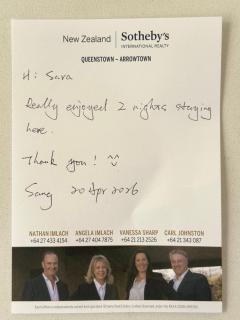 New Zealand Sotheby's
INTERNATIONAL REALTY
QUEENSTOWN – ARROWTOWN
Hi Sara
Really enjoyed 2 nights staying
here.
Thank you! ^^
Sang 20 Apr 2026
NATHAN IMLACH ANGELA IMLACH VANESSA SHARP CARL JOHNSTON
+64 27 433 4154 +64 27 404 7875 +64 21 213 2526 +64 21 343 087